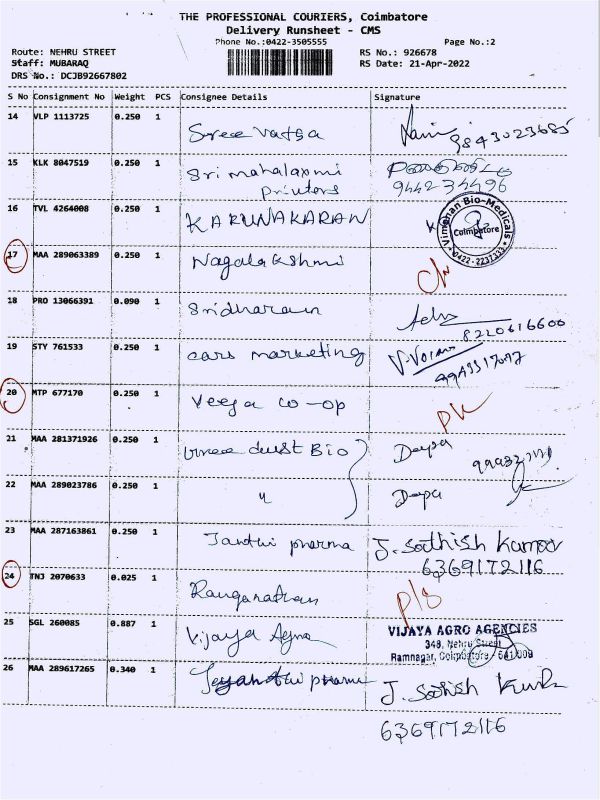 THE PROFESSIONAL COURIERS, Coimbatore
Delivery Runsheet - CMS
Phone No.:0422-3505555
Page No.:2
Route: NEHRU STREET
RS No.: 926678
Staff: MUBARAQ
RS Date: 21-Apr-2022
DRS No.: DCJB92667802
S No Consignment No Weight PCS Consignee Details Signature
14 VLP 1113725 0.250 1 Sree Vatsa 9843023685
15 KLK 8047519 0.250 1 Sri mahalaxmi
Printers 9442234496
16 TVL 4264008 0.250 1 KARUNAKARAN Vimohan Bio-Medicals Coimbatore 0422-2237333
17 MAA 289063389 0.250 1 Nagalakshmi
18 PRO 13066391 0.090 1 Sridharan 8220616600
19 STY 761533 0.250 1 cars marketing
20 MTP 677170 0.250 1 Veeja co-op
21 MAA 281371926 0.250 1 dust Bio Deepa
22 MAA 289023786 0.250 1 " Deepa
23 MAA 287163861 0.250 1 Janthi pharma J. Sathish Kumar
6369172116
24 TNJ 2070633 0.025 1 Ranganathan P/s
25 SGL 260085 0.887 1 Vijaya Agro VIJAYA AGRO AGENCIES
348, Nehru Street
Ramnagar, Coimbatore - 641 009
26 MAA 289617265 0.340 1 Jeyanthi pharma J. Sathish Kumar
6369172116